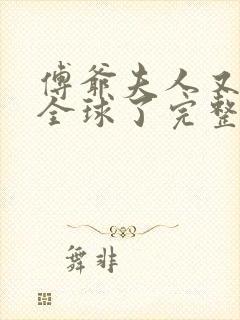 傅爷夫人又
全球了完整
舞非